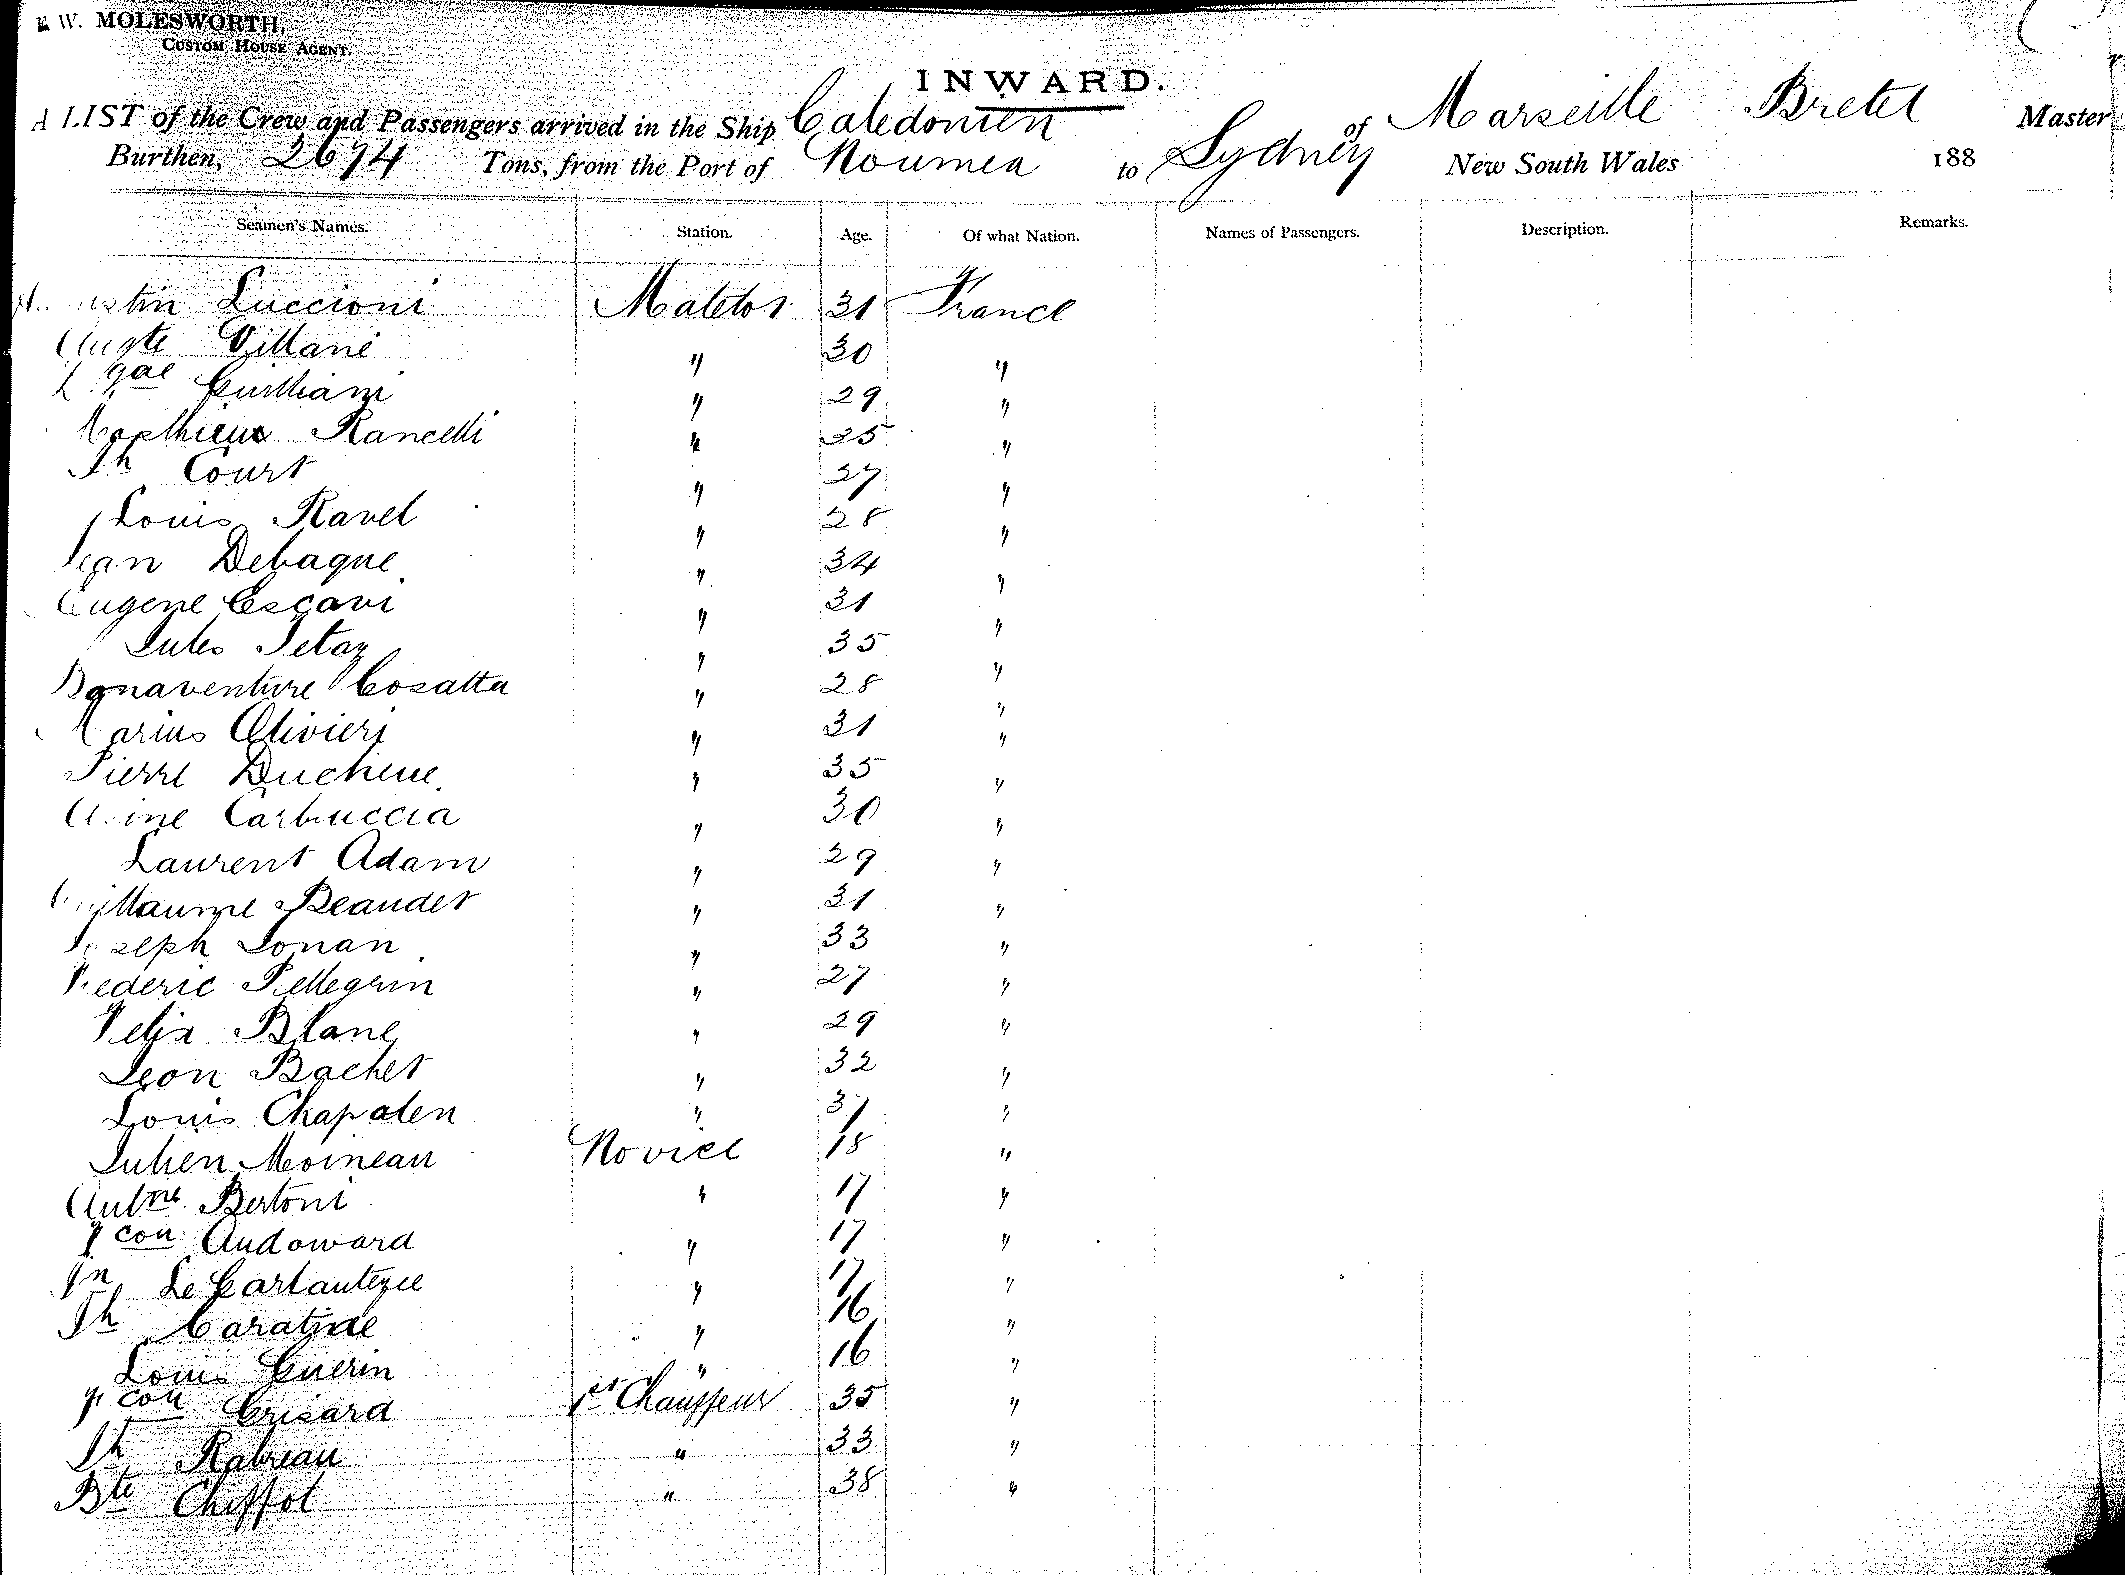 W. MOLESWORTH,
CUSTOM HOUSE AGENT.
INWARD.
A LIST of the Crew and Passengers arrived in the Ship Caledonien of Marseille Bretel Master
Burthen, 2674 Tons, from the Port of Noumea to Sydney New South Wales 188
Seamen's Names. Station. Age. Of what Nation. Names of Passengers. Description. Remarks.
Luccioni Matelot 31 France
Augte Villani " 30 "
Guilliani " 29 "
Matthieu Rancelli " 35 "
Jh Court " 27 "
Louis Ravel " 28 "
Jean Debaque " 34 "
Eugene Escavi " 31 "
Jules Jetaz " 35 "
Bonaventure Cosatta " 28 "
Marius Olivieri " 31 "
Pierre Duchene " 35 "
Carbuccia " 30 "
Laurent Adam " 29 "
Guillaume Beaudet " 31 "
Joseph Lonan " 33 "
Frederic Pellegrin " 27 "
Felix Blanc " 29 "
Leon Bachet " 32 "
Louis Chapalen " 37 "
Julien Moineau Novice 18 "
Antne Bertoni " 17 "
Fcou Audoward " 17 "
Jn Le " 17 "
Jh Caratine " 16 "
Louis Guerin " 16 "
Fcou Crisard 1er Chauffeur 35 "
Jh Rabreau " 33 "
Bte Chiffot " 38 "